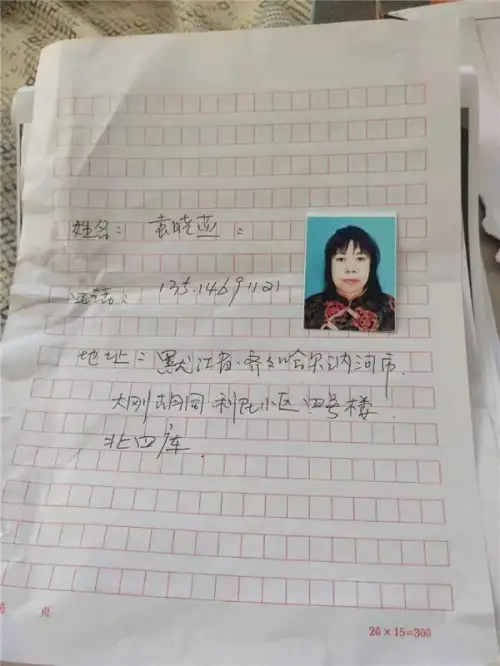 姓名：袁晓燕：
电话：13514691121
地址：黑龙江省.齐齐哈尔讷河市.
大刚胡同.利民小区四号楼
北四库.
页
20×15=300